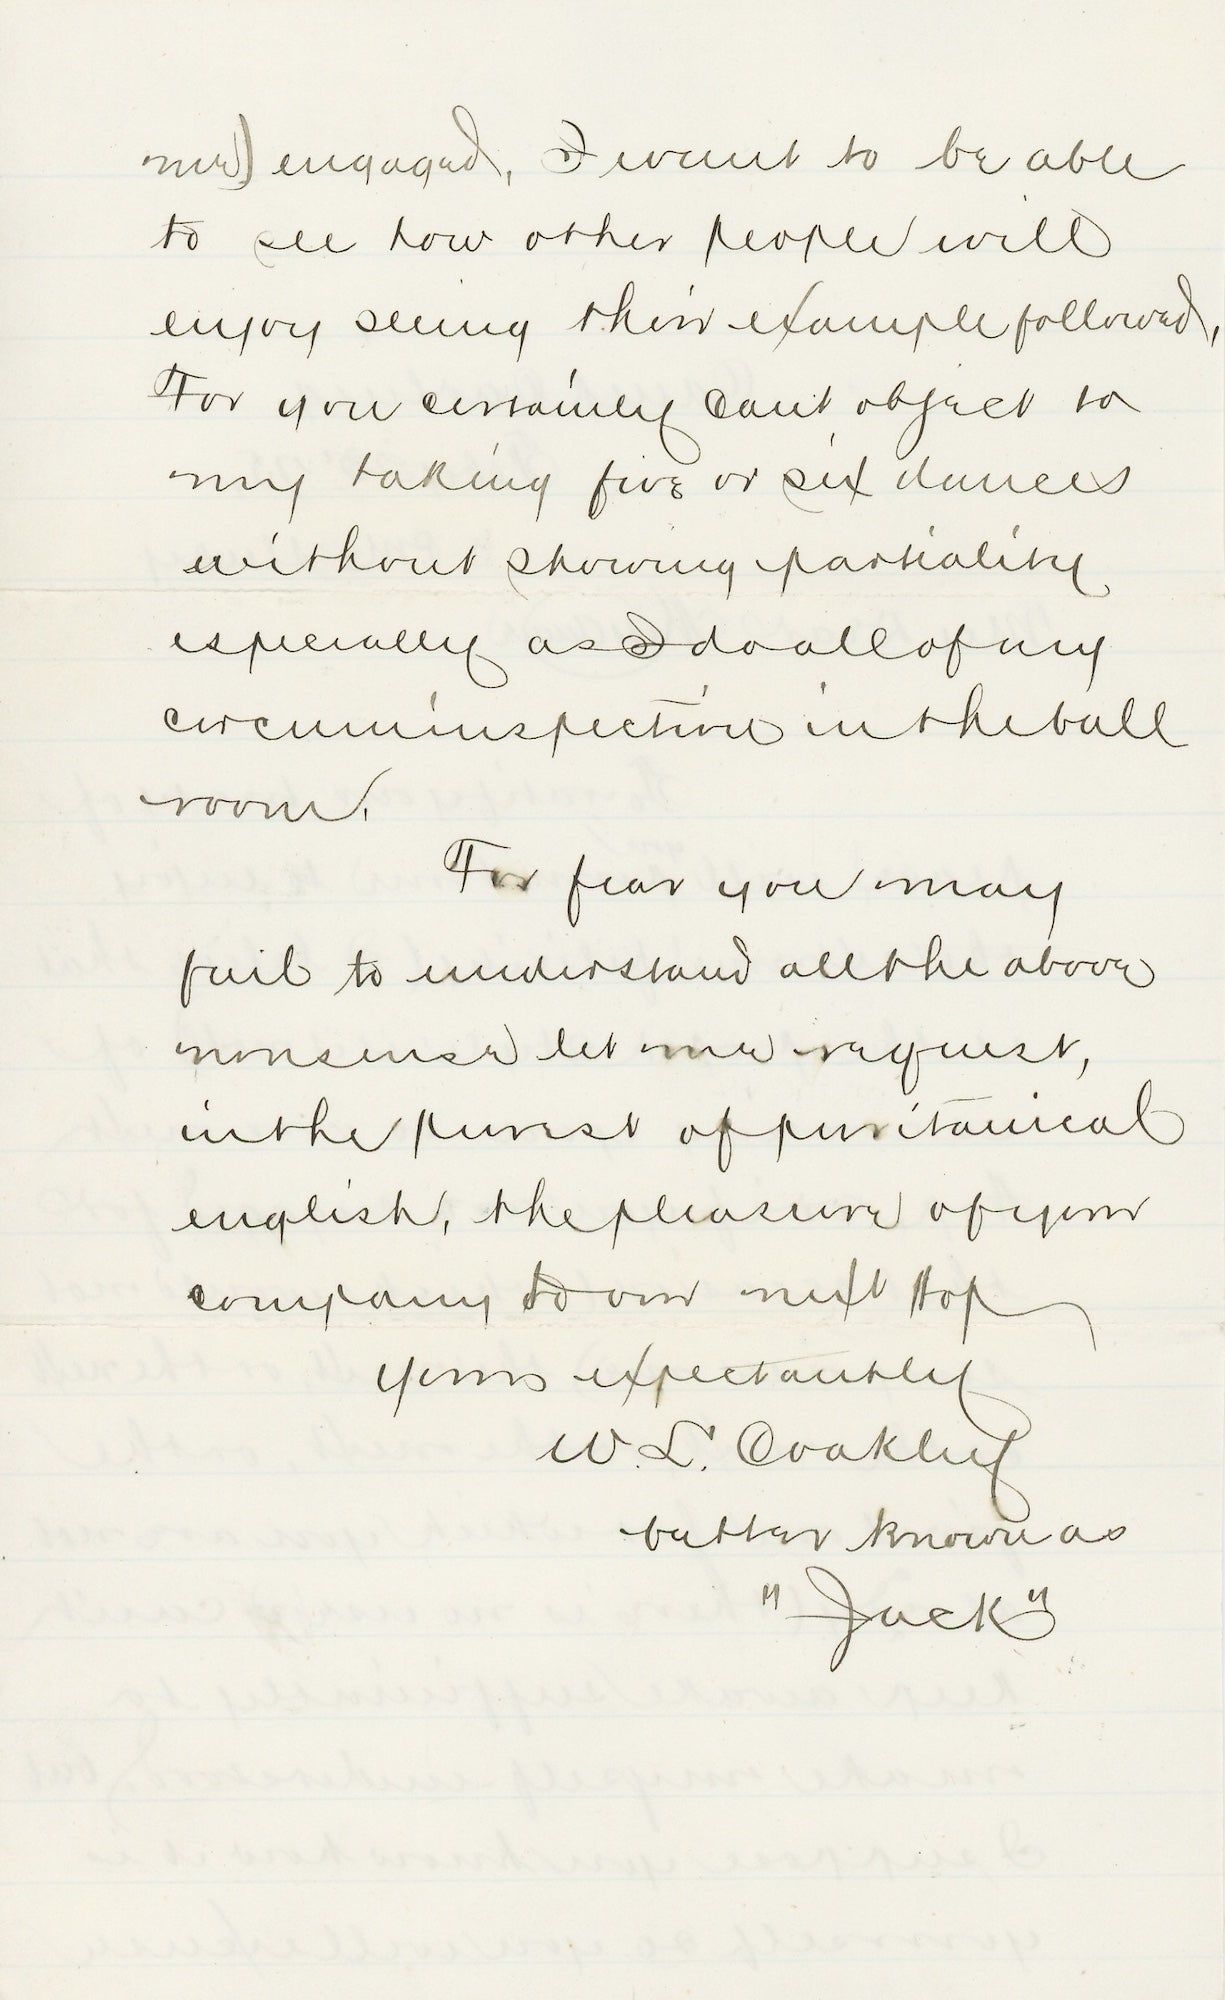 me) engaged, I want to be able
to see how other people will
enjoy seeing their example followed,
For you certainly cant object to
my taking five or six dances
without showing partiality
especially as I do all of my
circuminspective in the ball
room.
For fear you may
fail to understand all the above
nonsense let me request,
in the purest of puritanical
english, the pleasure of your
company to our next hop
yours expectantly
W. L. Coakley
better known as
"Jack"